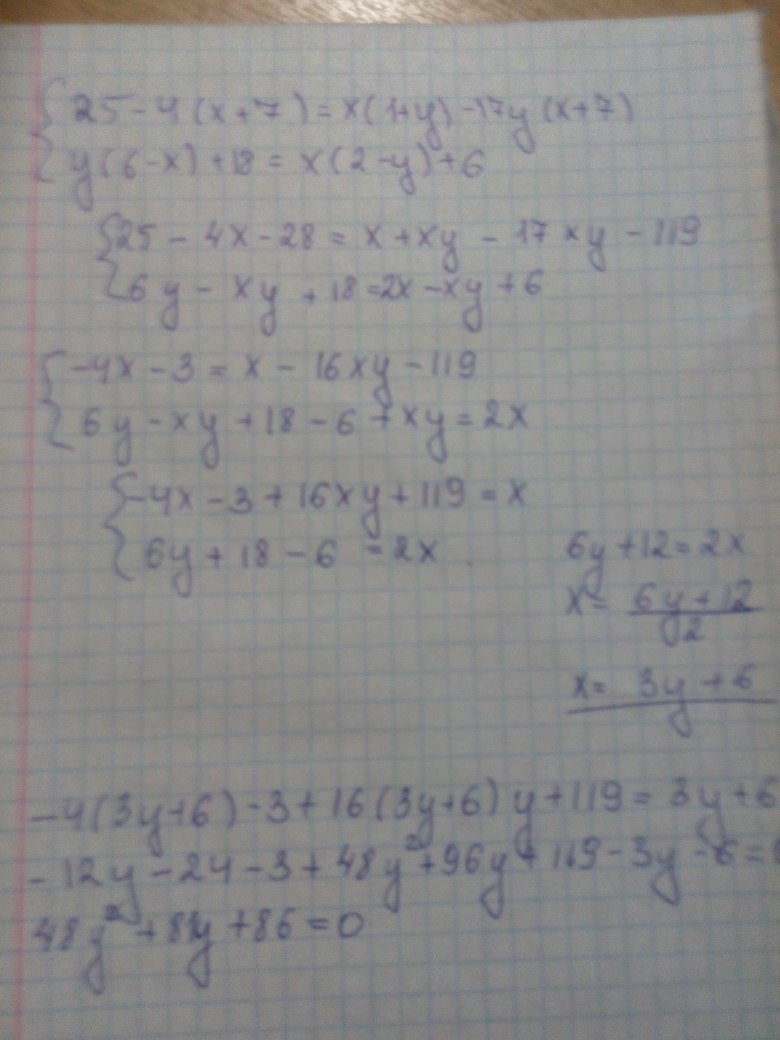 { 25 - 4(x+7) = x(1+y) - 17y(x+7)
y(6-x) + 18 = x(2-y) + 6
{ 25 - 4x - 28 = x + xy - 17xy - 119
6y - xy + 18 = 2x - xy + 6
{ -4x - 3 = x - 16xy - 119
6y - xy + 18 - 6 + xy = 2x
{ -4x - 3 + 16xy + 119 = x
6y + 18 - 6 = 2x
6y + 12 = 2x
x = 6y + 12 / 2
x = 3y + 6
-4(3y+6) - 3 + 16(3y+6)y + 119 = 3y + 6
-12y - 24 - 3 + 48y² + 96y + 119 - 3y - 6 = 0
48y² + 81y + 86 = 0